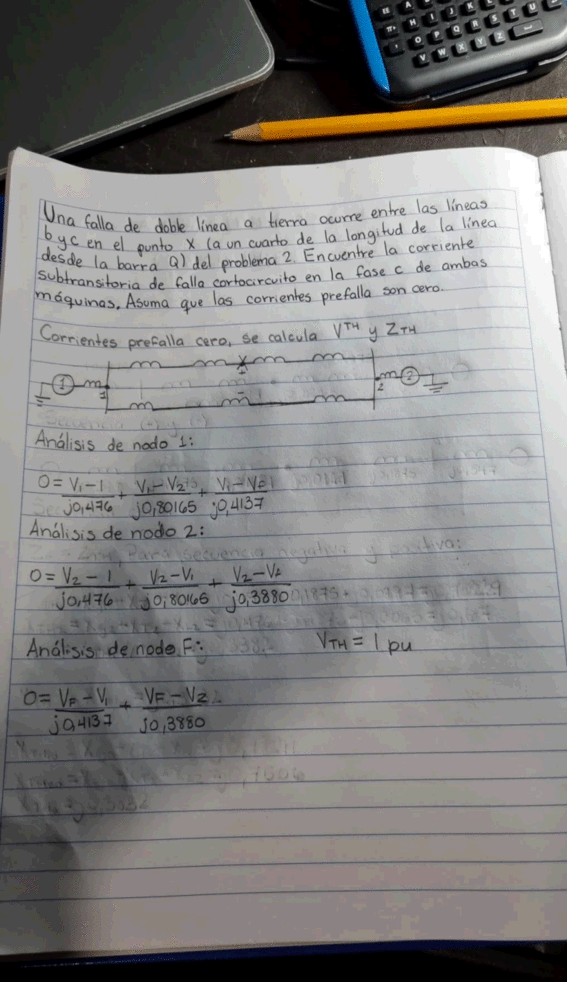 Una falla de doble línea a tierra ocurre entre las líneas
b y c en el punto X (a un cuarto de la longitud de la línea
desde la barra Q) del problema 2. Encuentre la corriente
subtransitoria de falla cortocircuito en la fase c de ambas
máquinas. Asuma que las corrientes prefalla son cero.
Corrientes prefalla cero, se calcula V^TH y Z_TH
1 2
1 2
Análisis de nodo 1:
0 = (V₁ - 1)/(j0,476) + (V₁ - V₂)/(j0,80165) + (V₁ - V_F)/(j0,4137)
Análisis de nodo 2:
0 = (V₂ - 1)/(j0,476) + (V₂ - V₁)/(j0,80165) + (V₂ - V_F)/(j0,3880)
Análisis de nodo F: V_TH = 1 pu
0 = (V_F - V₁)/(j0,4137) + (V_F - V₂)/(j0,3880)